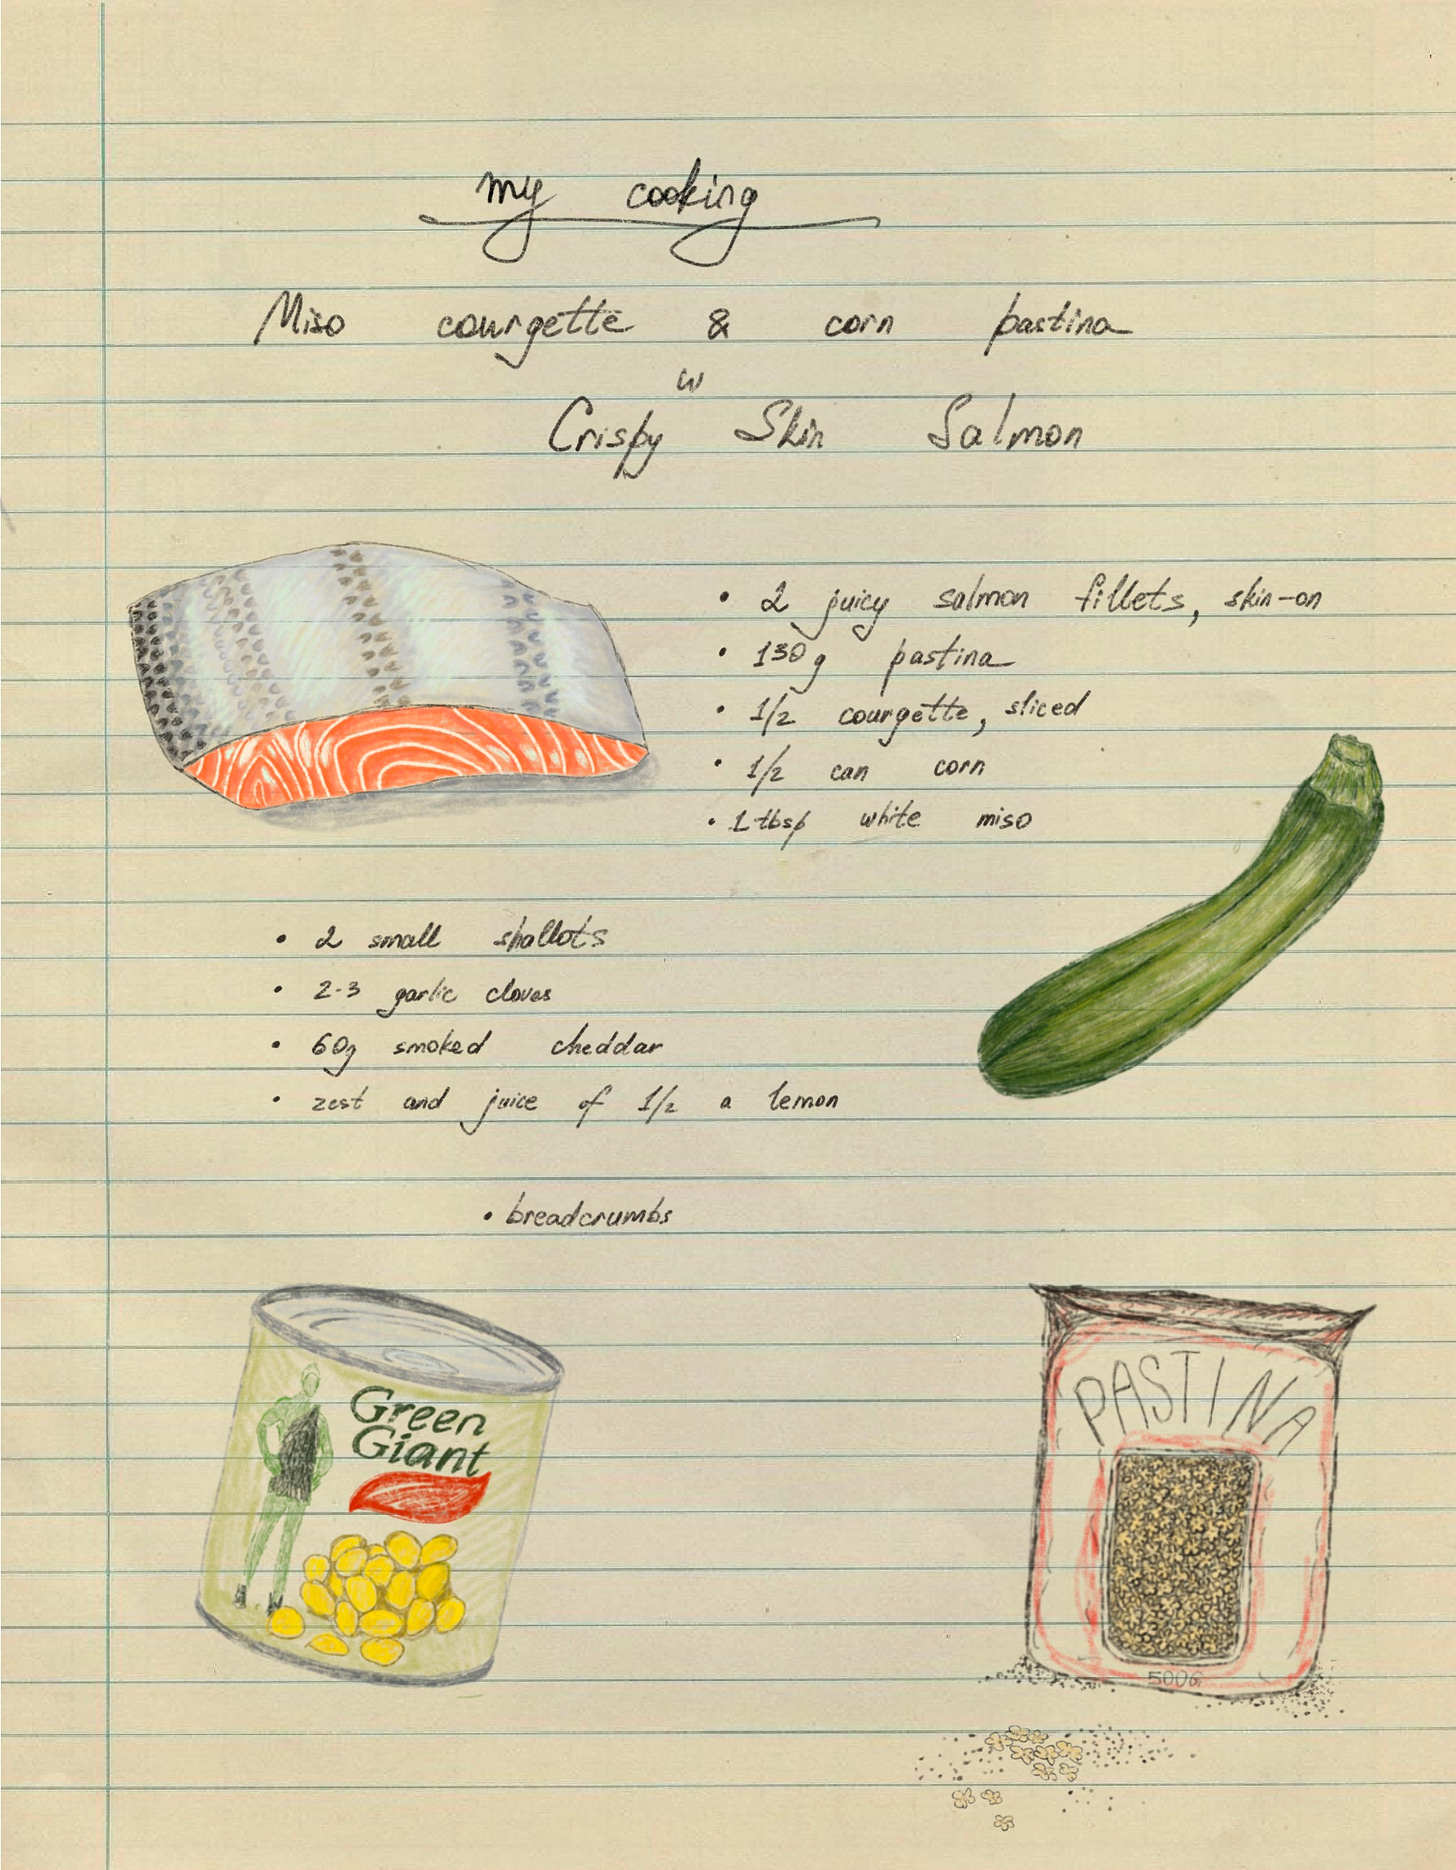 my cooking
Miso courgette & corn pastina
w
Crispy Skin Salmon
• 2 juicy salmon fillets, skin-on
• 130g pastina
• 1/2 courgette, sliced
• 1/2 can corn
• 1 tbsp white miso
• 2 small shallots
• 2-3 garlic cloves
• 60g smoked cheddar
• zest and juice of 1/2 a lemon
• breadcrumbs
Green
Giant
PASTINA
500G